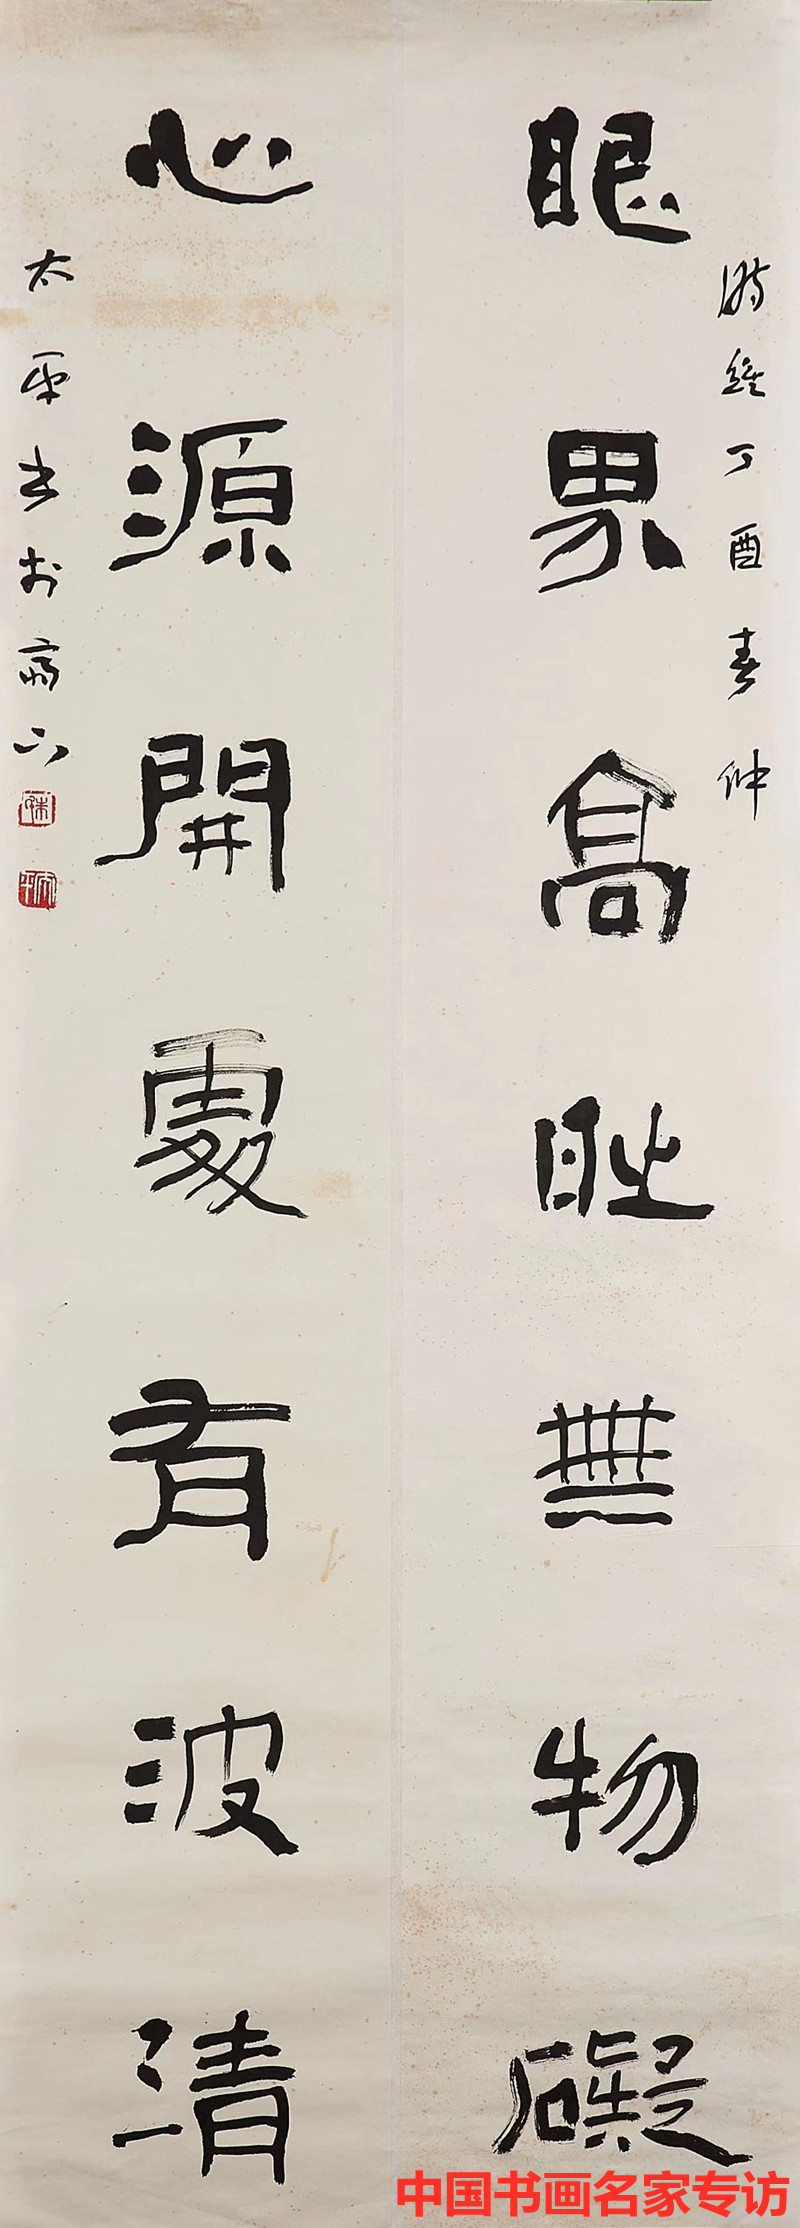 時維丁酉春仲
眼界高時無物礙
心源開處有波清
太平书於斋下
中国书画名家专访